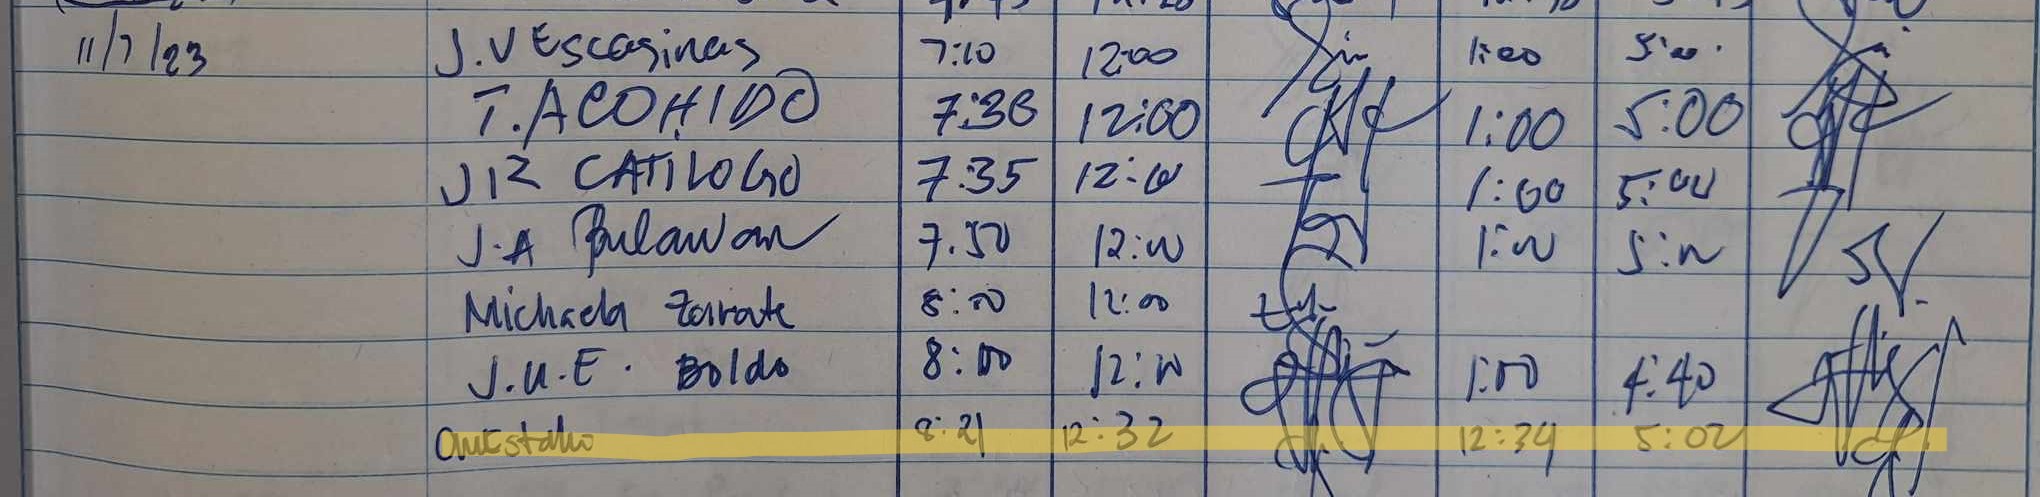 11/7/23 J.V Escasinas 7:10 12:00 1:00 5:00
T. ACOHIDO 7:30 12:00 1:00 5:00
JIR CATILOGO 7:35 12:00 1:00 5:00
J.A Bulawan 7:50 12:00 1:00 5:00
Michaela Zarate 8:00 12:00
J.U.E. Boldo 8:00 12:00 1:00 4:40
8:21 12:32 12:34 5:02